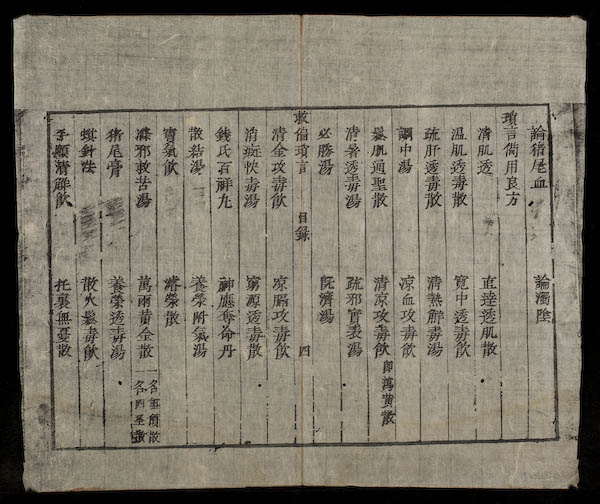 論猪尾血 論瀉陰
瓊言尚用良方
清肌透 直達透肌散
温肌透毒散 寛中透毒飲
疏肝透毒散 清熱解毒湯
調中湯 凉血攻毒飲
鬆肌通聖散 清凉攻毒飲 即瀉黄散
清暑透毒湯 疏邪實表湯
必勝湯 既濟湯
救偏瓊言 目録 四
清金攻毒飲 凉膈攻毒飲
消斑快毒湯 窮源透毒散
錢氏百祥丸 神應奪命丹
散結湯 養榮附氣湯
寳氣飲 濬榮散
滌邪救苦湯 萬兩黄金散 一名無價散 一名四聖散
猪尾膏 養榮透毒湯
蜞針法 散火鬆毒飲
手順清解飲 托裏無憂散